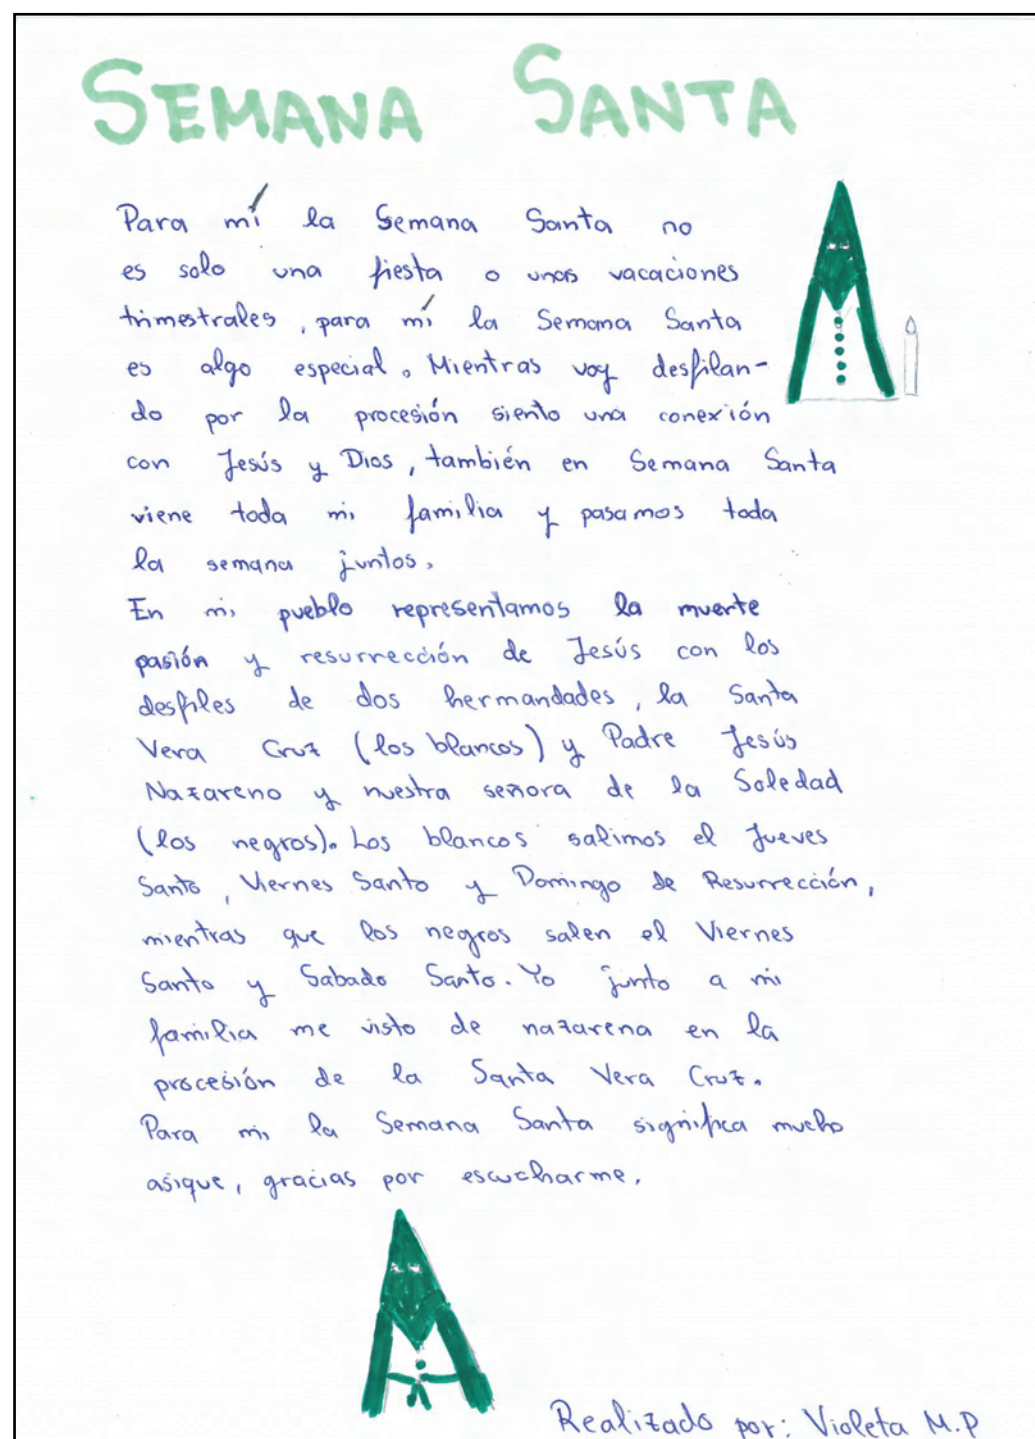 SEMANA SANTA
Para mí la Semana Santa no
es solo una fiesta o unas vacaciones
trimestrales, para mí la Semana Santa
es algo especial. Mientras voy desfilan-
do por la procesión siento una conexión
con Jesús y Dios, también en Semana Santa
viene toda mi familia y pasamos toda
la semana juntos.
En mi pueblo representamos la muerte
pasión y resurrección de Jesús con los
desfiles de dos hermandades, la Santa
Vera Cruz (los blancos) y Padre Jesús
Nazareno y nuestra señora de la Soledad
(los negros). Los blancos salimos el Jueves
Santo, Viernes Santo y Domingo de Resurrección,
mientras que los negros salen el Viernes
Santo y Sabado Santo. Yo junto a mi
familia me visto de nazarena en la
procesión de la Santa Vera Cruz.
Para mi la Semana Santa significa mucho
asique, gracias por escucharme.
Realizado por: Violeta M.P